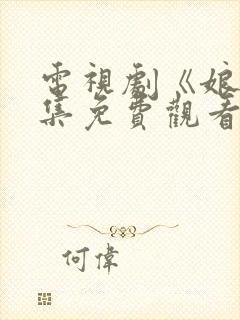 電視劇《娘
集免費觀看
何偉